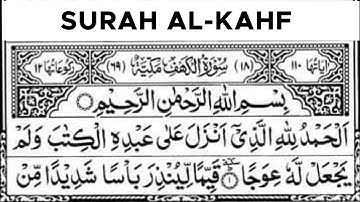 SURAH AL-KAHF
اٰیَاتُهَا ١١٠ (١٨) سُوْرَةُ الْكَهْفِ مَكِّیَّةٌ (٦٩) رُكُوْعَاتُهَا ١٢
بِسْمِ اللّٰهِ الرَّحْمٰنِ الرَّحِیْمِ
اَلْحَمْدُ لِلّٰهِ الَّذِیْۤ اَنْزَلَ عَلٰی عَبْدِهِ الْكِتٰبَ وَلَمْ
یَجْعَلْ لَّهٗ عِوَجًا ۱ قَیِّمًا لِّیُنْذِرَ بَاْسًا شَدِیْدًا مِّنْ